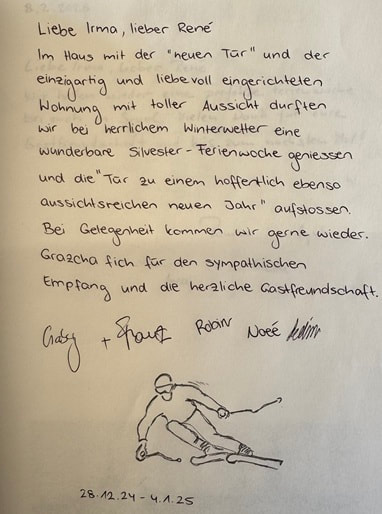 Liebe Irma, lieber René
Im Haus mit der "neuen Tür" und der
einzigartig und liebevoll eingerichteten
Wohnung mit toller Aussicht durften
wir bei herrlichem Winterwetter eine
wunderbare Silvester-Ferienwoche geniessen
und die "Tür zu einem hoffentlich ebenso
aussichtsreichen neuen Jahr" aufstossen.
Bei Gelegenheit kommen wir gerne wieder.
Grazcha fich für den sympathischen
Empfang und die herzliche Gastfreundschaft.
+ Robin Noéé
28.12.24 - 4.1.25